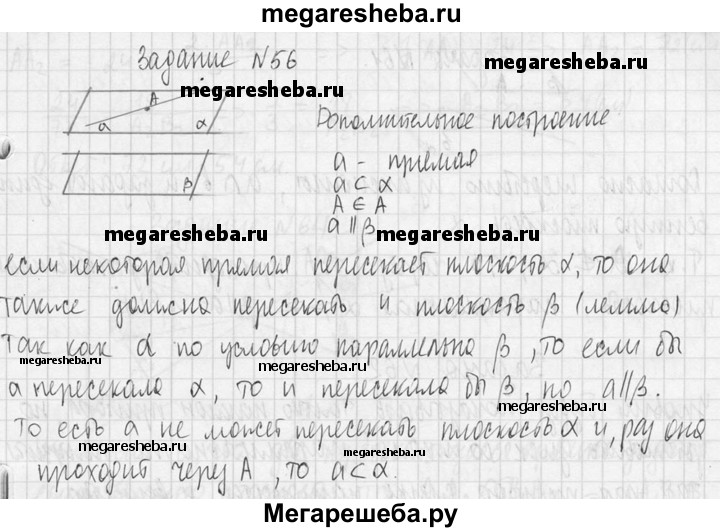 megaresheba.ru
Задание №56
megaresheba.ru
megaresheba.ru
A
a
α
Дополнительное построение
β
a - прямая
a ⊂ α
A ∈ A
a ∥ β
megaresheba.ru
megaresheba.ru
если некоторая прямая пересекает плоскость α, то она
также должна пересекать и плоскость β (лемма)
Так как α по условию параллельна β, то если бы
megaresheba.ru
megaresheba.ru
a пересекала α, то и пересекала бы β, но a∥β.
megaresheba.ru
То есть a не может пересекать плоскость α и, раз она
megaresheba.ru
megaresheba.ru
проходит через A, то a⊂α.
Мегарешеба.ру